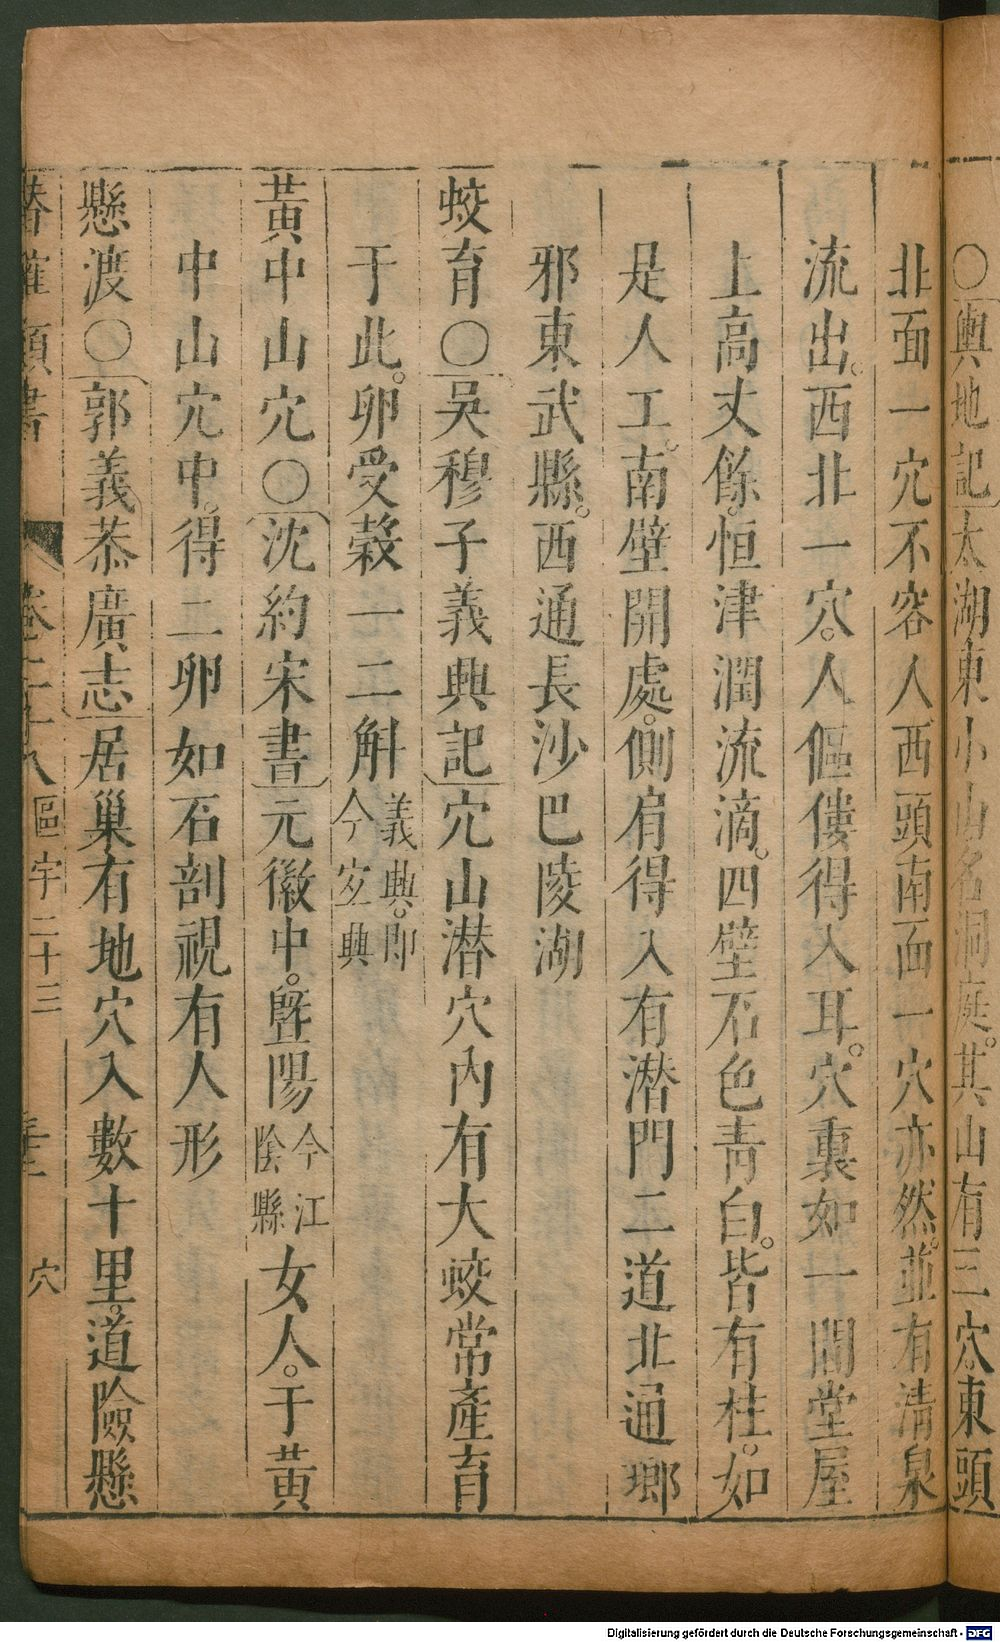 ○輿地記太湖東小山名洞庭。其山有三穴。東頭
北面一穴不容人西頭南面一穴亦然。並有清泉
流出。西北一穴。人傴僂得入耳。穴裏如一間堂屋
上高丈餘。恒津潤流滴。四壁石色青白。皆有柱。如
是人工。南壁開處。側肩得入有潜門二道北通瑯
邪東武縣。西通長沙巴陵湖
蛟育○吳穆子義興記穴山潜穴内有大蛟常產育
于此。卵受穀一二斛義興。即今宜興
黃中山穴○沈約宋書元徽中。曁陽今江陰縣女人。于黃
中山穴中。得二卵如石剖視有人形
懸渡○郭義恭廣志居巢有地穴入數十里。道險懸
潛確類書 卷二十八 區宇二十三 穴
Digitalisierung gefördert durch die Deutsche Forschungsgemeinschaft - DFG